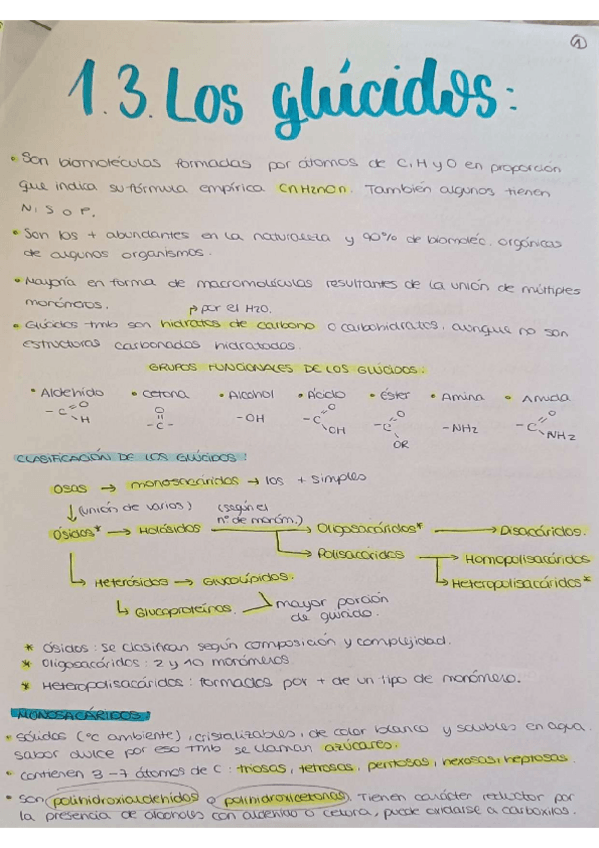 1
1.3. Los glúcidos:
• Son biomoléculas formadas por átomos de C, H y O en proporción
que indica su fórmula empírica CnH2nOn. También algunos tienen
N, S o P.
• Son los + abundantes en la naturaleza y 90% de bioméc. orgánicas
de algunos organismos.
• Mayoría en forma de macromoléculas resultantes de la unión de múltiples
monómeros.
↱ por el H2O.
• Glúcidos tmb son hidratos de carbono o carbohidratos, aunque no son
estructuras carbonadas hidratadas.
GRUPOS FUNCIONALES DE LOS GLÚCIDOS:
• Aldehído • Cetona • Alcohol • Ácido • Éster • Amina • Amida
-C=O H O=C- -OH -C=O OH -C=O OR -NH2 -C=O NH2
CLASIFICACIÓN DE LOS GLÚCIDOS:
Osas → monosacáridos → los + simples
↓ (unión de varios) (según el
nº de monóm.)
Ósidos* → Holósidos → Oligosacáridos* → Disacáridos.
→ Polisacáridos → Homopolisacáridos
→ Heteropolisacáridos*
→ Heterósidos → Glucolípidos.
→ Glucoproteínas.
mayor porción
de glúcido.
* Ósidos: se clasifican según composición y complejidad.
* Oligosacáridos: 2 y 10 monómeros.
* Heteropolisacáridos: formados por + de un tipo de monómero.
MONOSACÁRIDOS:
• Sólidos (ºC ambiente), cristalizables, de color blanco y solubles en agua.
sabor dulce por eso tmb se llaman azúcares.
• contienen 3-7 átomos de C: triosas, tetrosas, pentosas, hexosas, heptosas.
• Son polihidroxialdehídos o polihidroxicetonas. Tienen carácter reductor por
la presencia de alcoholes con aldehído o cetona, puede oxidarse a carboxilos.